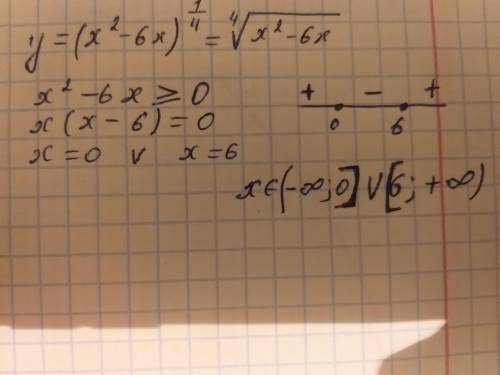 y = (x² - 6x)^{1/4} = ⁴√(x² - 6x)
x² - 6x ≥ 0
x(x - 6) = 0
x = 0 v x = 6
+ - +
0 6
x ∈ (-∞; 0] V [6; +∞)